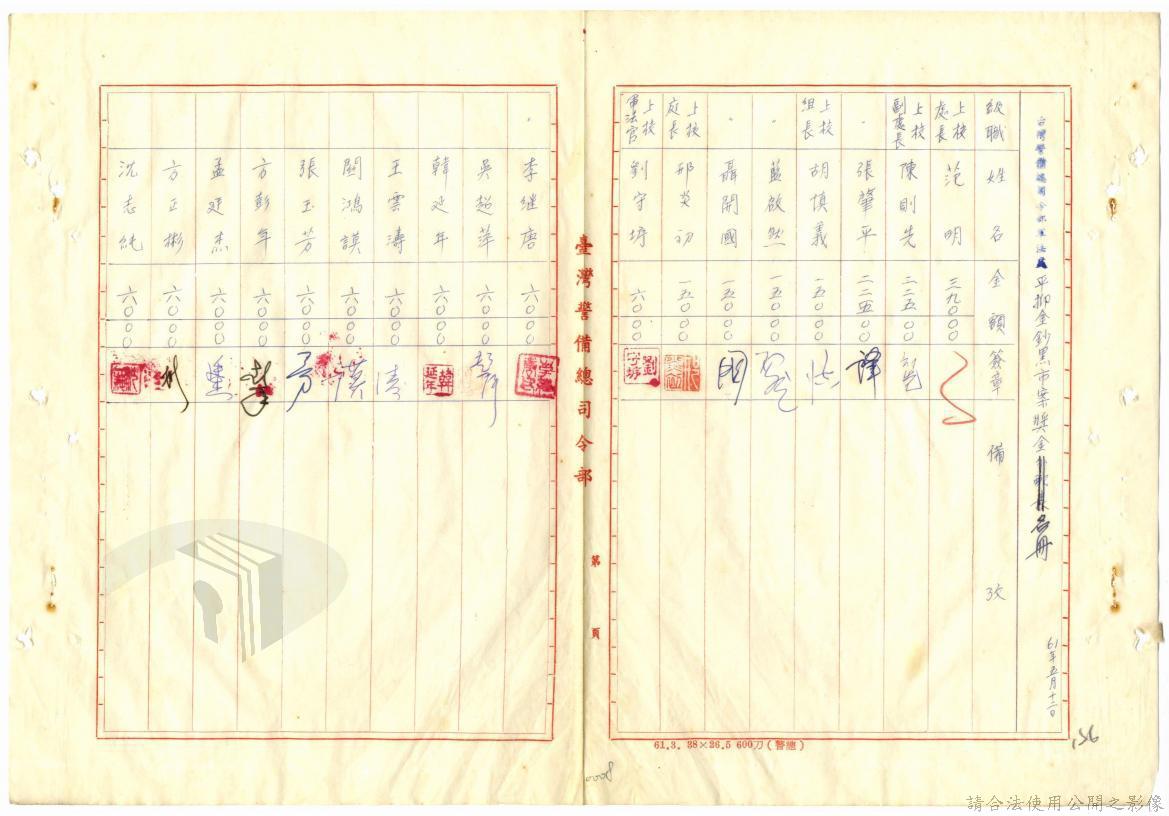 台灣警備總司令部軍法處平抑金鈔黑市案獎金名冊
61年五月十二日
級職 姓名 金額 簽章 備攷
上校處長 范明 三九〇〇〇
上校副處長 陳則先 二二五〇〇
〃 張肇平 二二五〇〇
上校組長 胡慎義 一五〇〇〇
〃 藍啟然 一五〇〇〇
〃 聶開國 一五〇〇〇 國
上校庭長 邢炎初 一五〇〇〇
上校軍法官 劉守埼 六〇〇〇
〃 李继唐 六〇〇〇
吳超萍 六〇〇〇
韓延年 六〇〇〇 韓延年
王雲濤 六〇〇〇
關鴻謨 六〇〇〇
張玉芳 六〇〇〇 芳
方彭年 六〇〇〇
孟廷杰 六〇〇〇
方正彬 六〇〇〇 彬
沈志純 六〇〇〇
臺灣警備總司令部
第 頁
61.3. 38×26.5 600刀(警總)
156
0008
請合法使用公開之影像